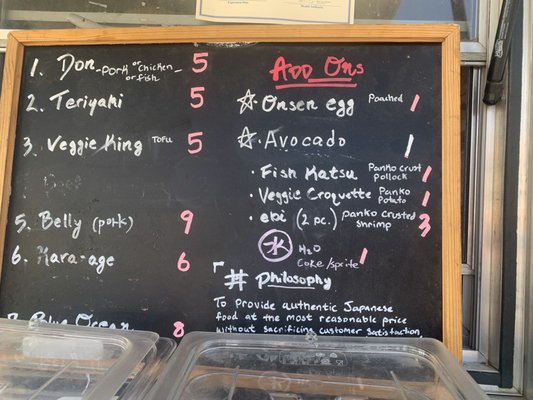 1. Don -pork or chicken or fish- 5
2. Teriyaki 5
3. Veggie King TOFU 5
5. Belly (pork) 9
6. Kara-age 6
7. Blue Ocean 8
Add Ons
☆. Onsen egg Poached 1
☆. Avocado 1
• Fish Katsu Panko crust Pollock 1
• Veggie Croquette Panko Potato 1
• ebi (2 pc.) Panko crusted shrimp 3
H2O
Coke/sprite 1
# Philosophy
To provide authentic Japanese
food at the most reasonable price
without sacrificing customer satisfaction